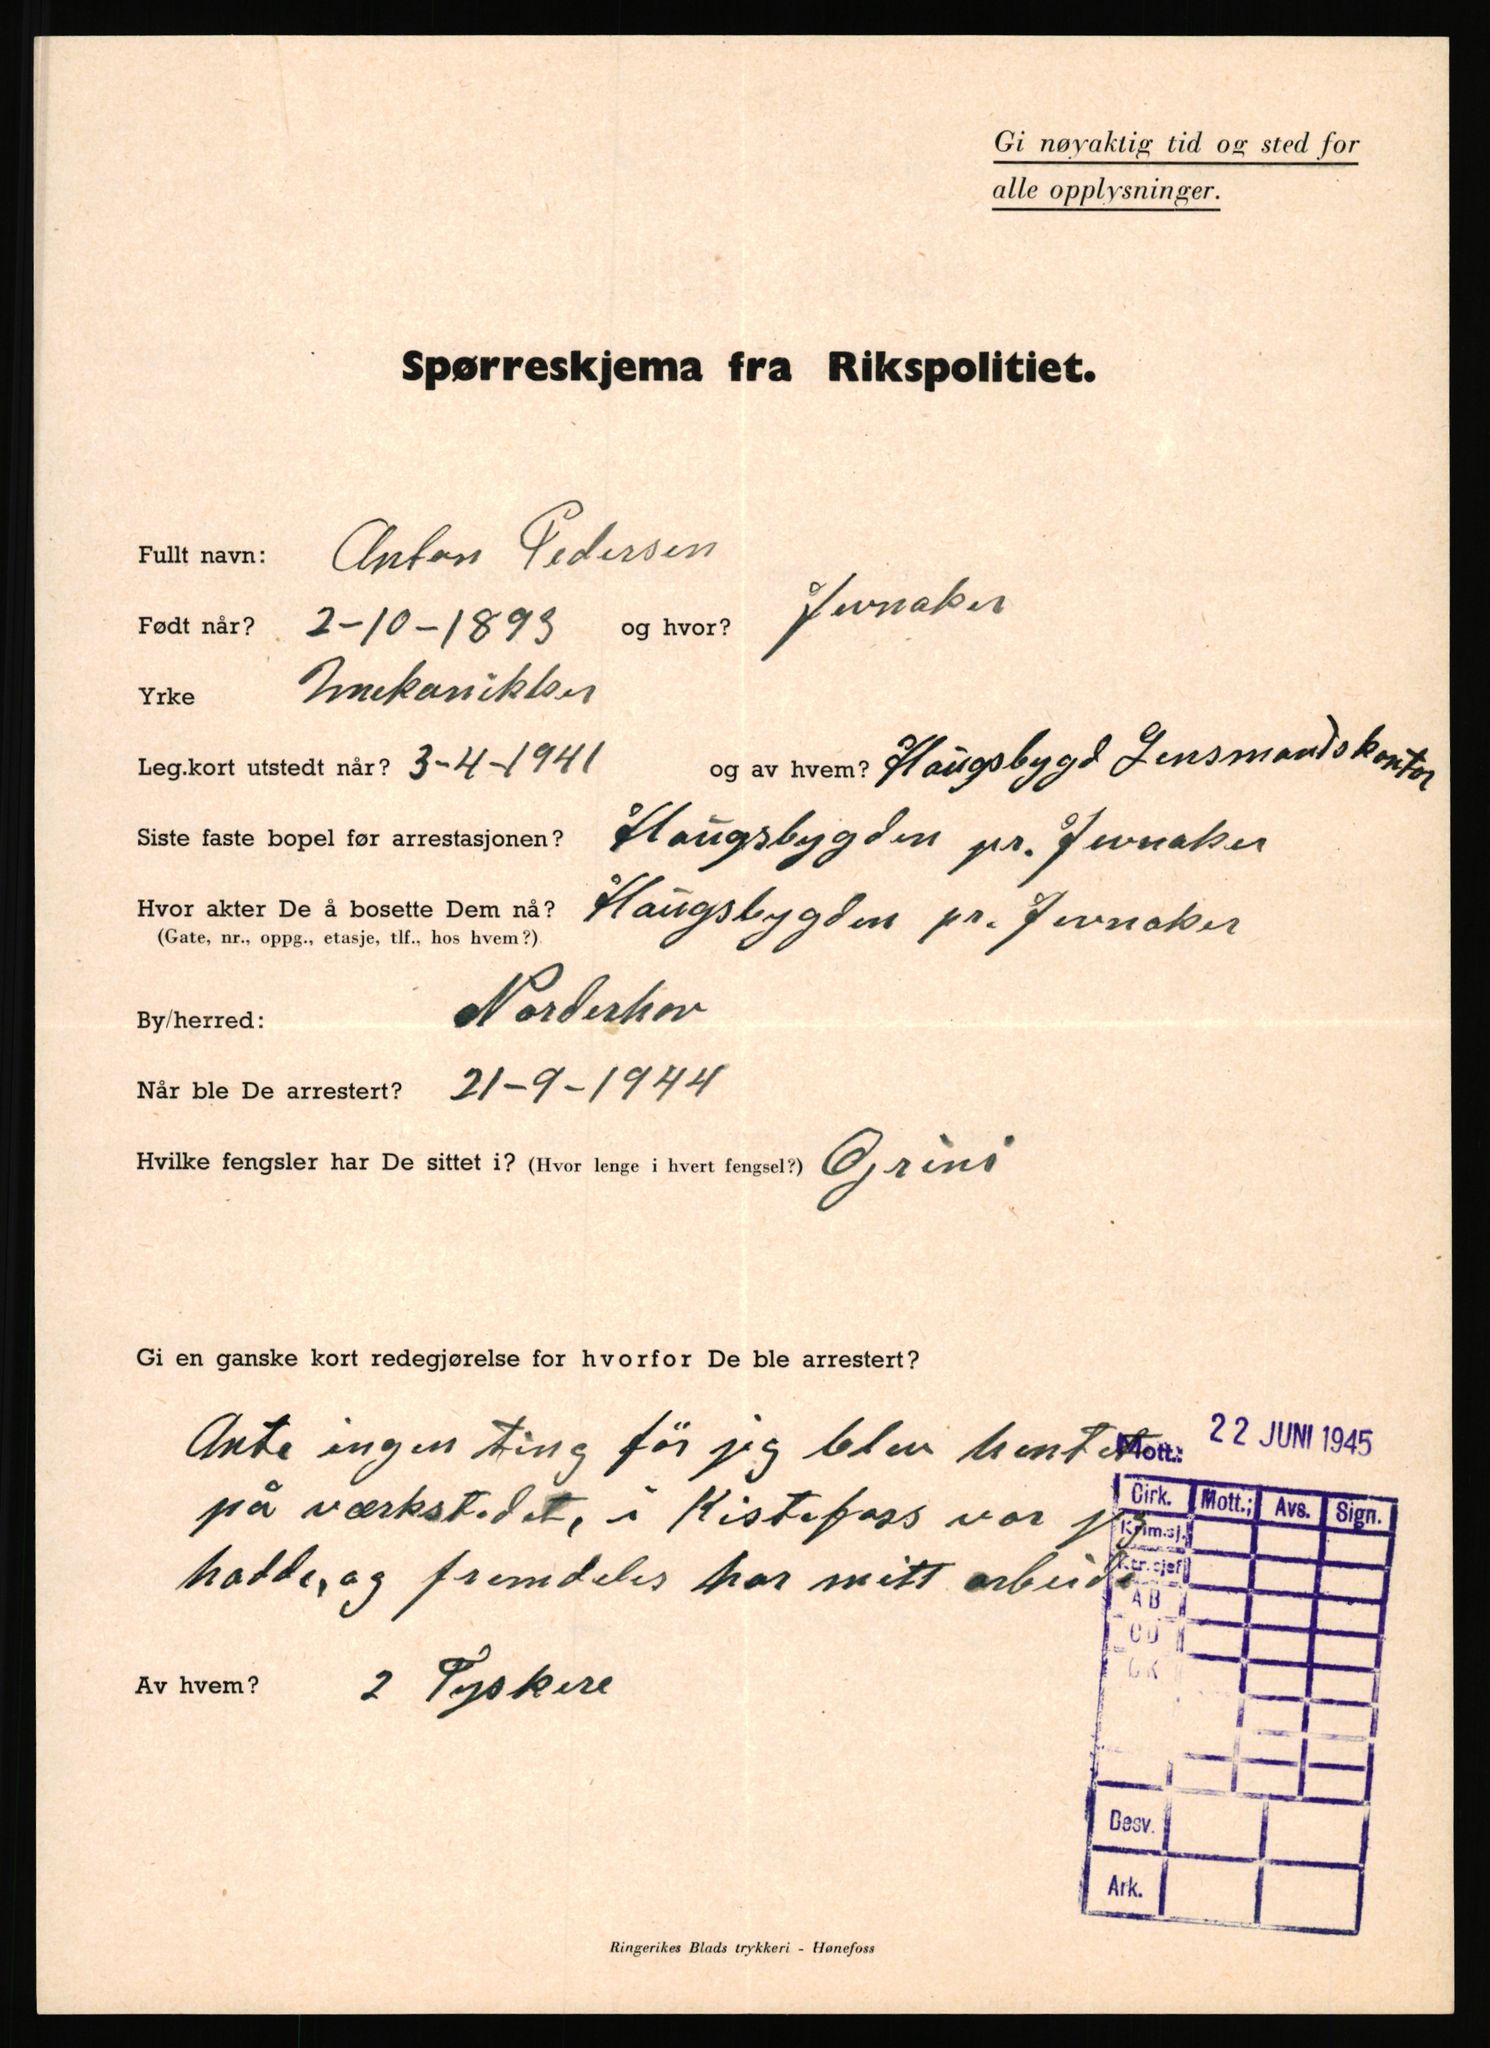 Gi nøyaktig tid og sted for
alle opplysninger.
Spørreskjema fra Rikspolitiet.
Fullt navn: Anton Pedersen
Født når? 2-10-1893 og hvor? Jevnaker
Yrke mekanikker
Leg.kort utstedt når? 3-4-1941 og av hvem? Haugsbygd Lensmandskontor
Siste faste bopel før arrestasjonen? Haugsbygden pr. Jevnaker
Hvor akter De å bosette Dem nå? Haugsbygden pr. Jevnaker
(Gate, nr., oppg., etasje, tlf., hos hvem?)
By/herred: Norderhov
Når ble De arrestert? 21-9-1944
Hvilke fengsler har De sittet i? (Hvor lenge i hvert fengsel?) Grini
Gi en ganske kort redegjørelse for hvorfor De ble arrestert?
Ante ingen ting för jeg blev hentet
på værkstedet, i Kistefoss vor jeg
hadde, og fremdeles har mitt arbeide
Av hvem? 2 Tyskere
Mott.: 22 JUNI 1945
Cirk. Mott.; Avs. Sign.
Krim.sj.
Ktr.sjef
AB
CD
Desv.
Ark.
Ringerikes Blads trykkeri - Hønefoss